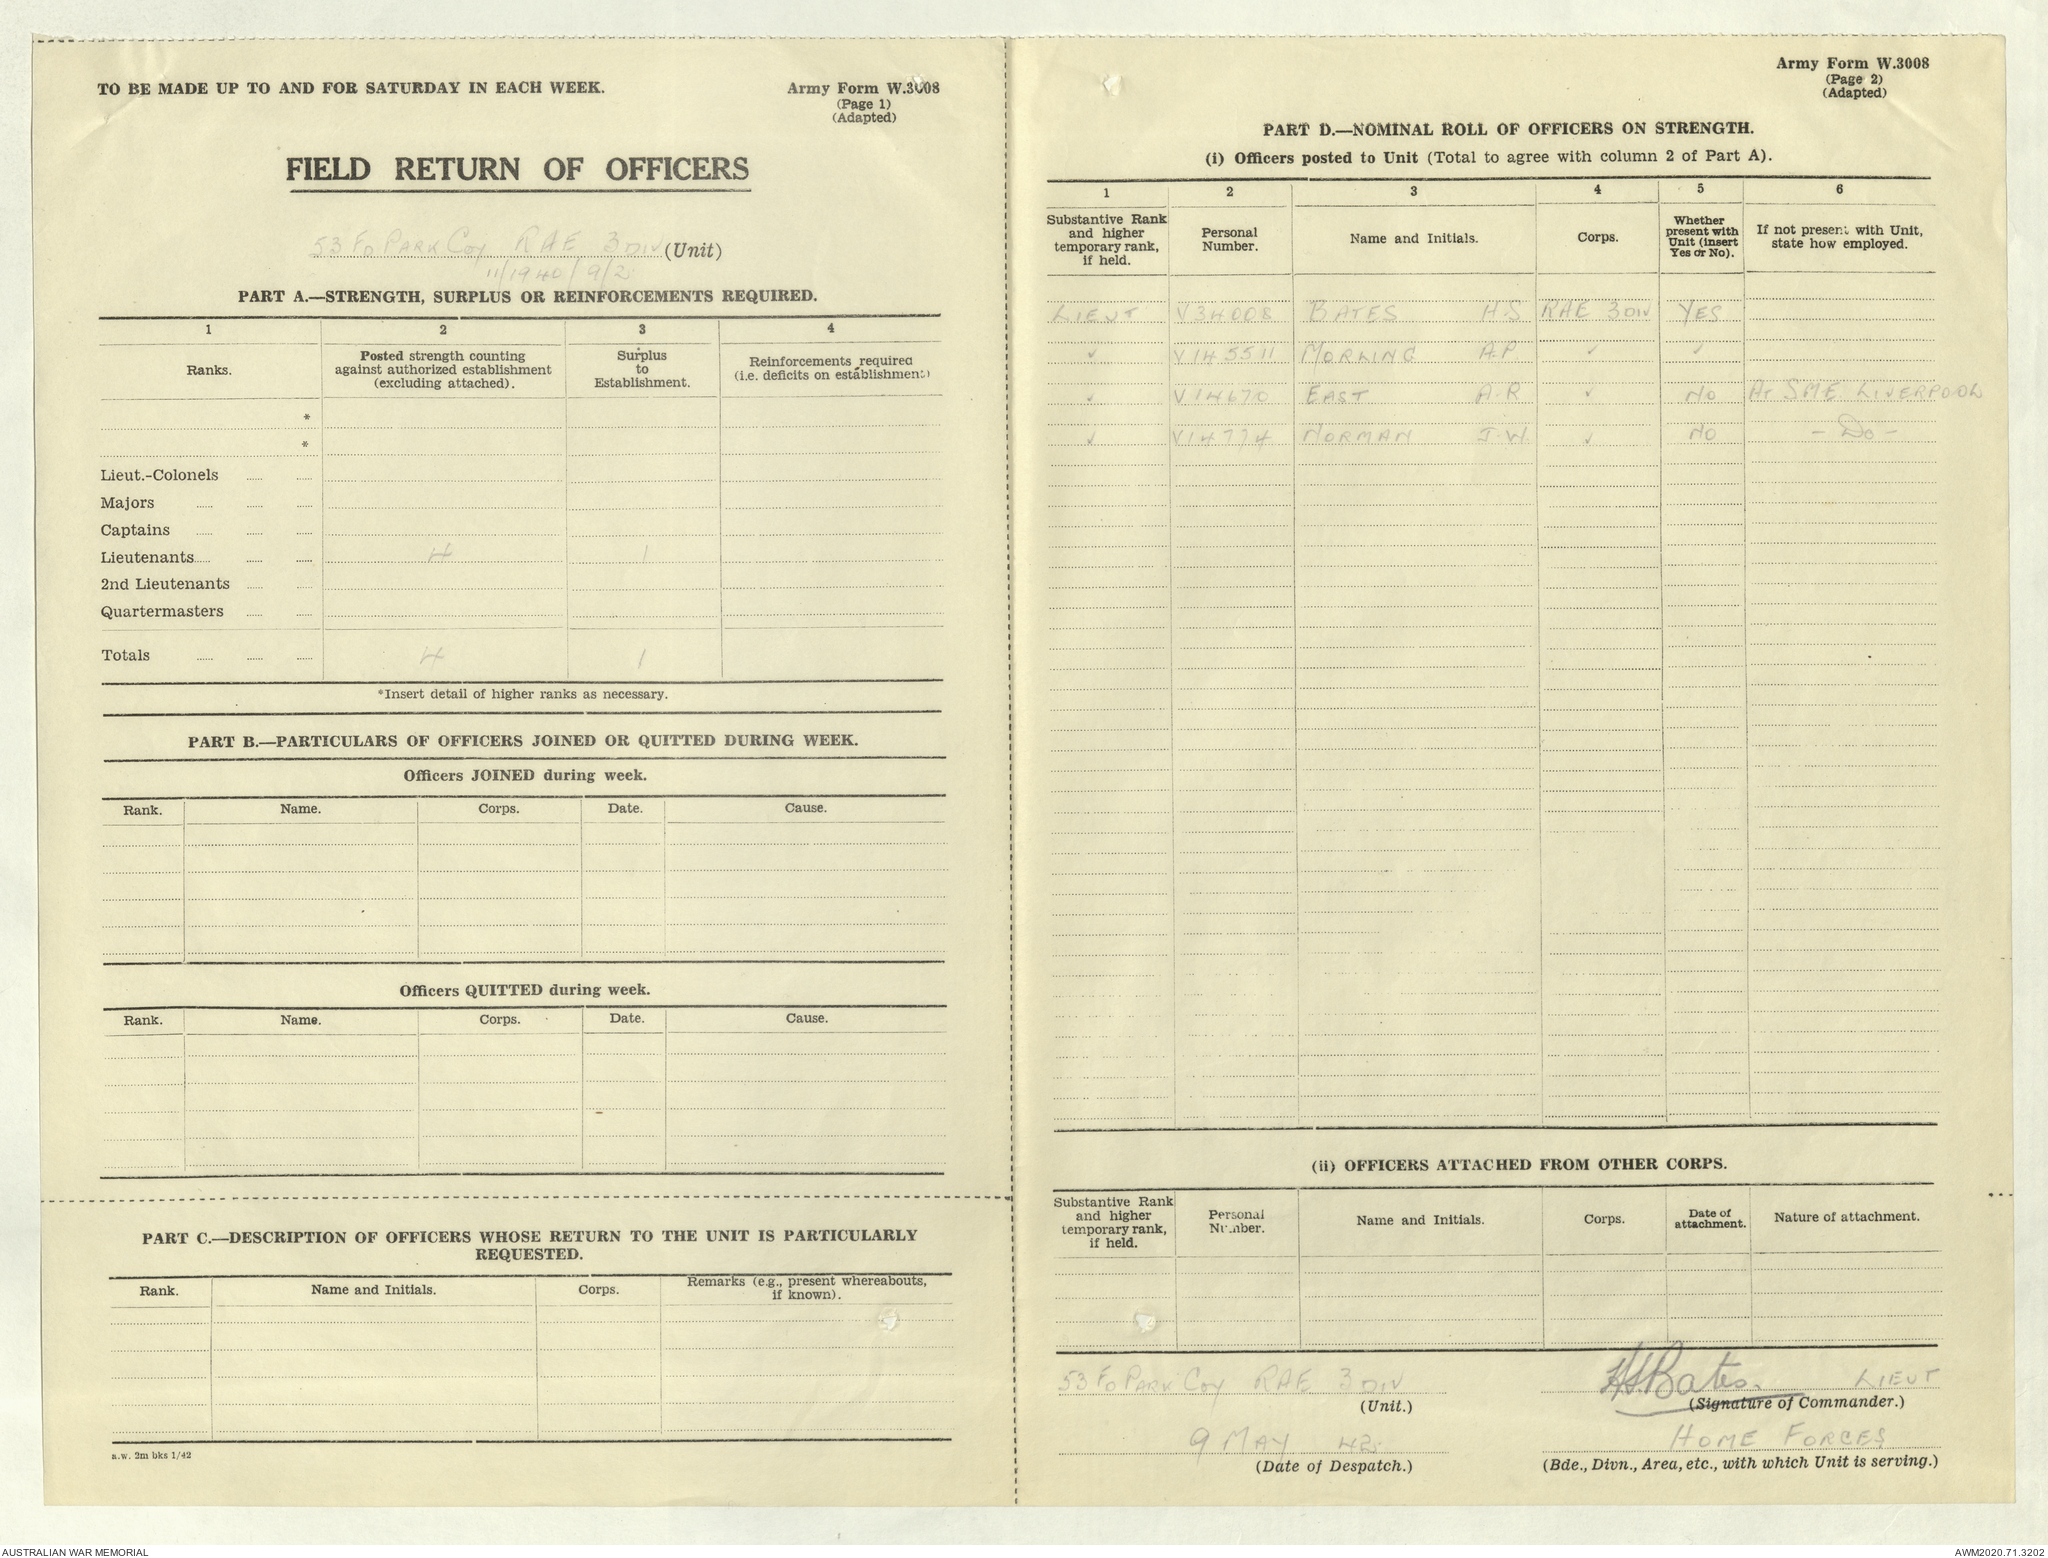 TO BE MADE UP TO AND FOR SATURDAY IN EACH WEEK.
Army Form W.3008
(Page 1)
(Adapted)
FIELD RETURN OF OFFICERS
53 FD PARK COY RAE 3 DIV (Unit)
11/1940/9/2
PART A.—STRENGTH, SURPLUS OR REINFORCEMENTS REQUIRED.
1 2 3 4
Ranks. Posted strength counting against authorized establishment (excluding attached). Surplus to Establishment. Reinforcements required (i.e. deficits on establishment)
*
*
Lieut.-Colonels ...... ......
Majors ...... ...... ......
Captains ...... ...... ......
Lieutenants...... ...... ...... 4 1
2nd Lieutenants ...... ......
Quartermasters ...... ......
Totals ...... ...... ...... 4 1
*Insert detail of higher ranks as necessary.
PART B.—PARTICULARS OF OFFICERS JOINED OR QUITTED DURING WEEK.
Officers JOINED during week.
Rank. Name. Corps. Date. Cause.
Officers QUITTED during week.
Rank. Name. Corps. Date. Cause.
PART C.—DESCRIPTION OF OFFICERS WHOSE RETURN TO THE UNIT IS PARTICULARLY
REQUESTED.
Rank. Name and Initials. Corps. Remarks (e.g., present whereabouts, if known).
a.w. 2m bks 1/42
Army Form W.3008
(Page 2)
(Adapted)
PART D.—NOMINAL ROLL OF OFFICERS ON STRENGTH.
(i) Officers posted to Unit (Total to agree with column 2 of Part A).
1 2 3 4 5 6
Substantive Rank and higher temporary rank, if held. Personal Number. Name and Initials. Corps. Whether present with Unit (insert Yes or No). If not present with Unit, state how employed.
LIEUT V34008 BATES H.S RAE 3 DIV YES
✓ V145511 MORLING A.P ✓ ✓
✓ V14670 EAST A.R ✓ NO AT SME LIVERPOOL
✓ V14774 NORMAN J.W. ✓ NO - Do -
(ii) OFFICERS ATTACHED FROM OTHER CORPS.
Substantive Rank and higher temporary rank, if held. Personal Number. Name and Initials. Corps. Date of attachment. Nature of attachment.
53 FD PARK COY RAE 3 DIV
(Unit.)
HSBates. LIEUT
(Signature of Commander.)
9 MAY 42
(Date of Despatch.)
HOME FORCES
(Bde., Divn., Area, etc., with which Unit is serving.)
AUSTRALIAN WAR MEMORIAL
AWM2020.71.3202